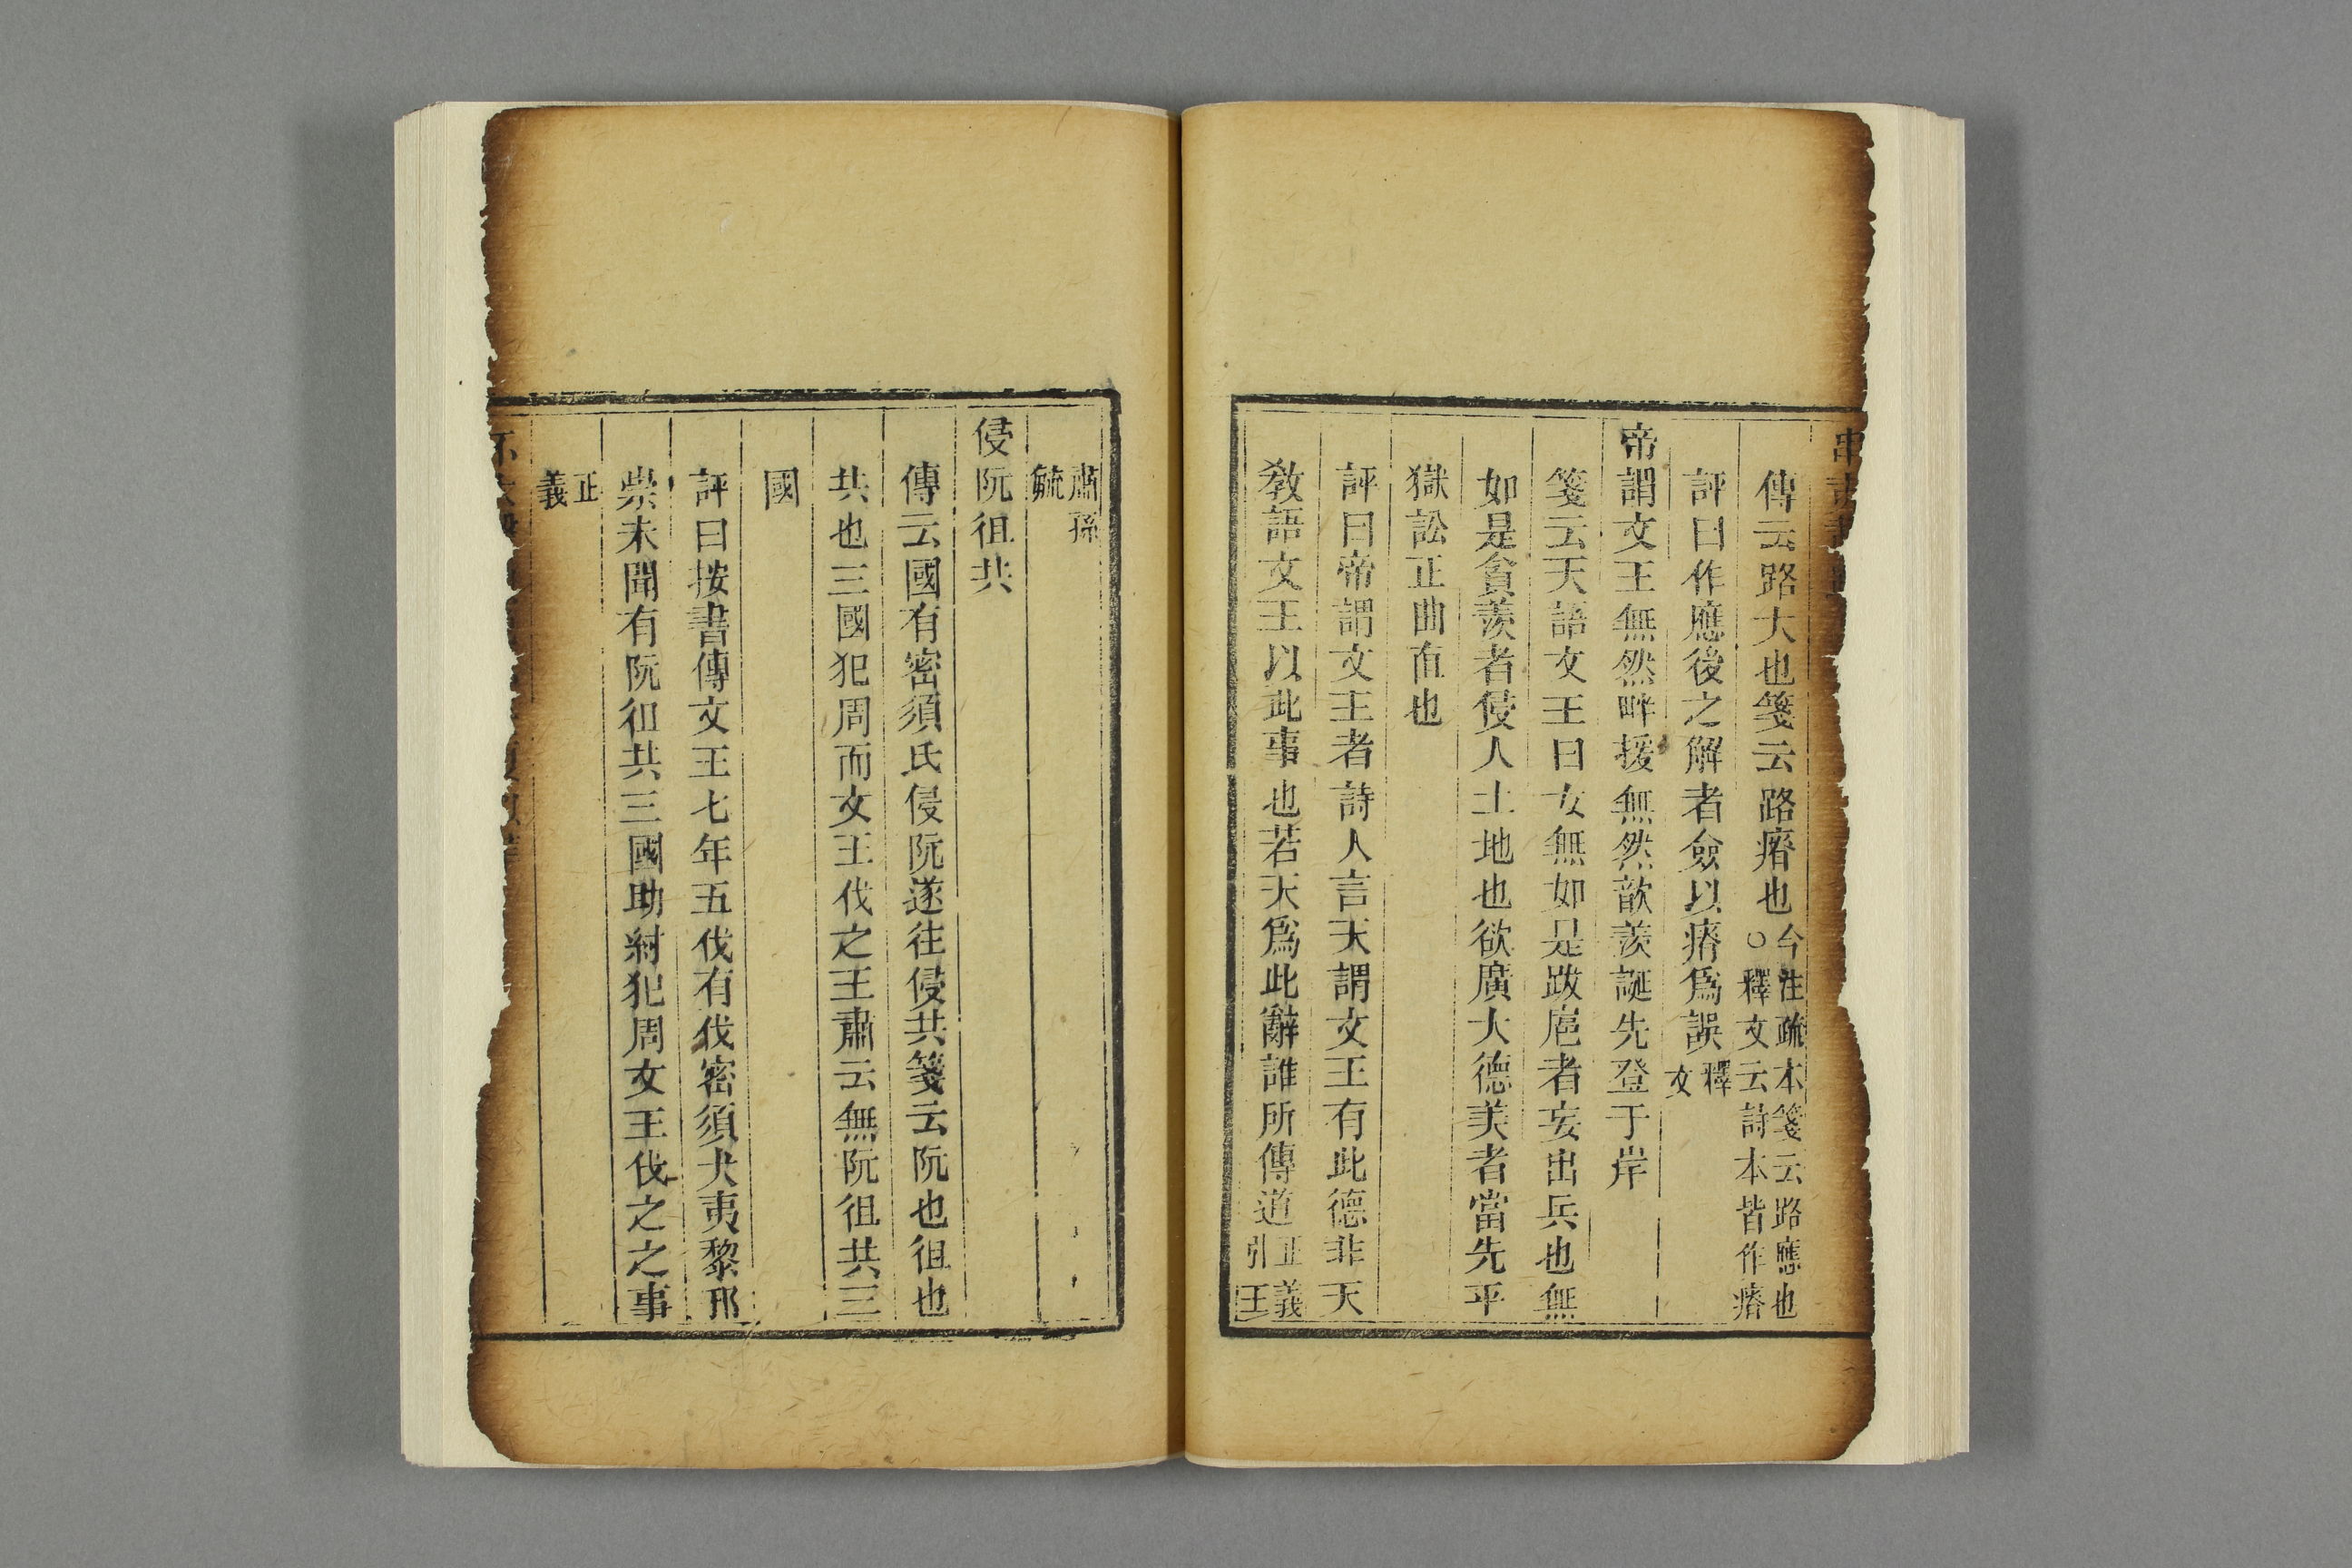 串夷載
傳云路大也箋云路瘠也今注疏本箋云路應也○釋文云詩本皆作瘠
評曰作應後之解者僉以瘠爲誤釋文
帝謂文王無然畔援無然歆羨誕先登于岸
箋云天語文王曰女無如是跋扈者妄出兵也無
如是貪羨者侵人土地也欲廣大德美者當先平
獄訟正曲直也
評曰帝謂文王者詩人言天謂文王有此德非天
敎語文王以此事也若天爲此辭誰所傳道正義引王
肅孫毓
侵阮徂共
傳云國有密須氏侵阮遂往侵共箋云阮也徂也
共也三國犯周而文王伐之王肅云無阮徂共三
國
評曰按書傳文王七年五伐有伐密須犬夷黎邘
崇未聞有阮徂共三國助紂犯周文王伐之之事
正義
不大